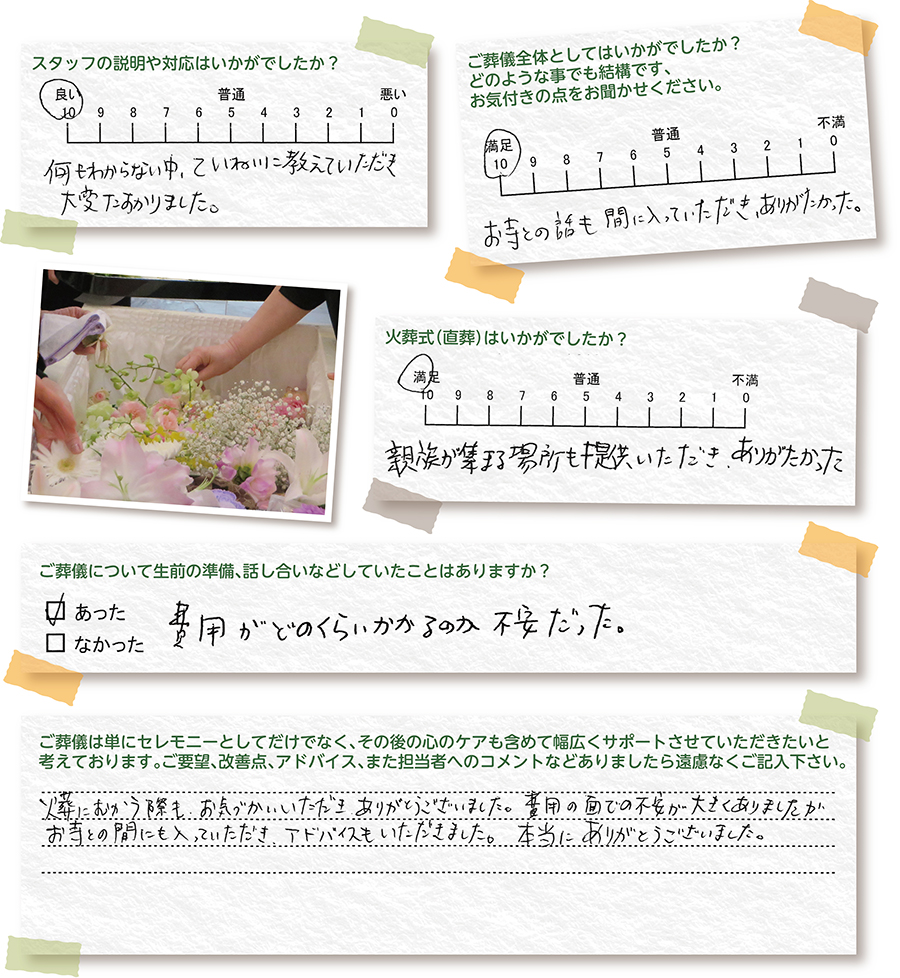 スタッフの説明や対応はいかがでしたか？
良い 普通 悪い
10 9 8 7 6 5 4 3 2 1 0
何もわからない中、ていねいに教えていただき
大変たすかりました。
ご葬儀全体としてはいかがでしたか？
どのような事でも結構です、
お気付きの点をお聞かせください。
満足 普通 不満
10 9 8 7 6 5 4 3 2 1 0
お寺との話も間に入っていただき、ありがたかった。
火葬式（直葬）はいかがでしたか？
満足 普通 不満
10 9 8 7 6 5 4 3 2 1 0
親族が集まる場所も提供いただき、ありがたかった
ご葬儀について生前の準備、話し合いなどしていたことはありますか？
あった
なかった
費用がどのくらいかかるのか不安だった。
ご葬儀は単にセレモニーとしてだけでなく、その後の心のケアも含めて幅広くサポートさせていただきたいと
考えております。ご要望、改善点、アドバイス、また担当者へのコメントなどありましたら遠慮なくご記入下さい。
火葬にむかう際も、お気づかいいただき、ありがとうございました。費用の面での不安が大きくありましたが
お寺との間にも入っていただき、アドバイスもいただきました。本当にありがとうございました。